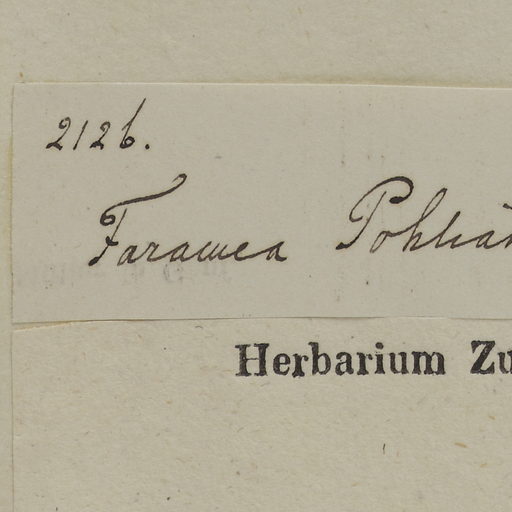 2126.
Faramea Pohlian
Herbarium Zu